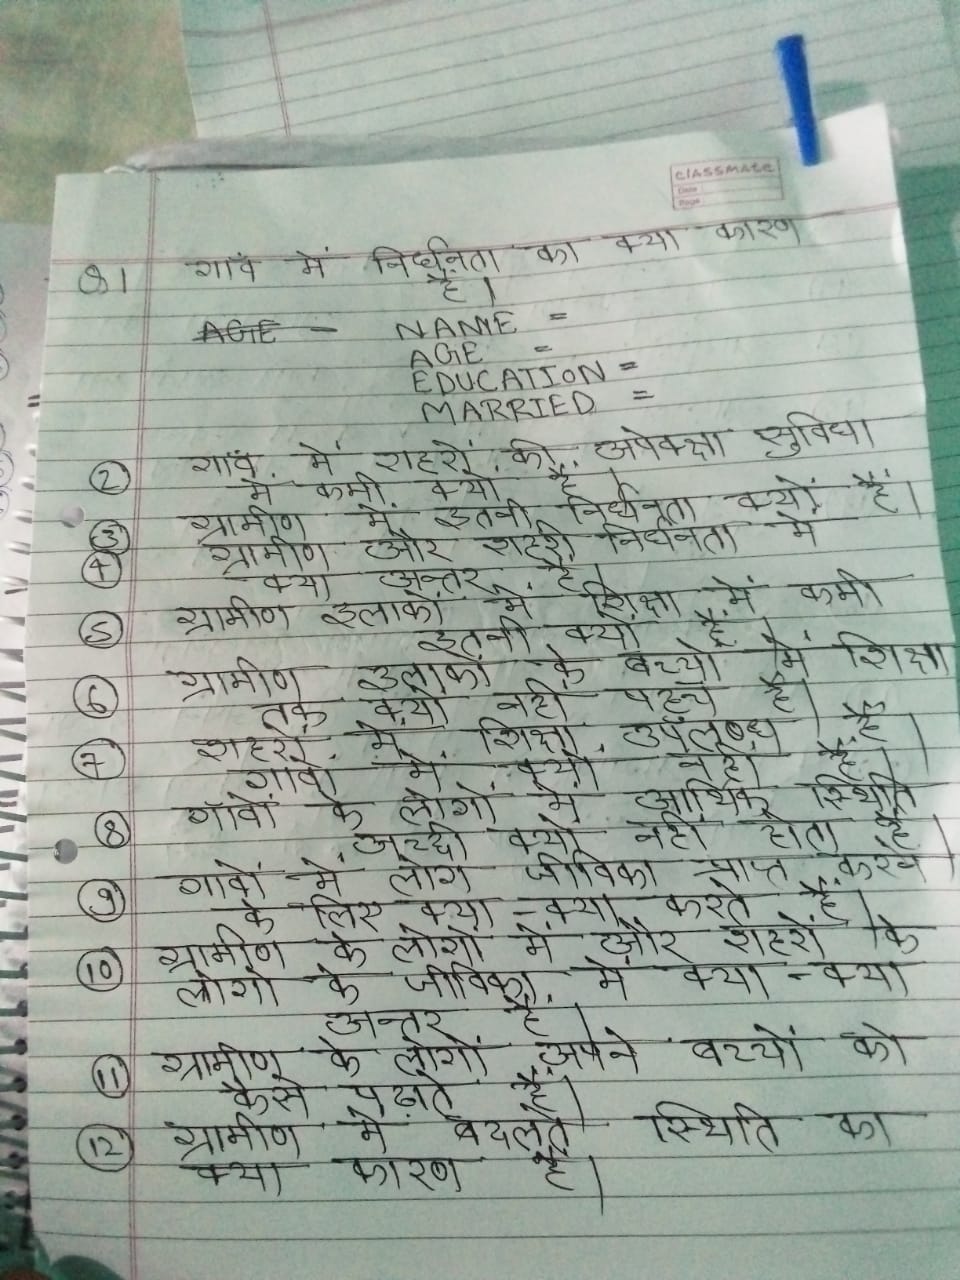 classmate
Date
Page
Q1 गावं में निर्धनता का क्या कारण
है।
AGE - NAME =
AGE =
EDUCATION =
MARRIED =
② गावं में शहरों की अपेक्क्षा सुविधा
में कमी क्यों है।
③ ग्रामीण में इतनी निर्धनता क्यों हैं।
④ ग्रामीण और शहरी निर्धनता में
क्या अन्तर है।
⑤ ग्रामीण इलाकों में शिक्षा में कमी
इतनी क्यों हैं।
⑥ ग्रामीण इलाकों के बच्चों में शिक्षा
तक क्यों नही पहच है।
⑦ शहरों में शिक्षा उपलब्ध है
गावों में क्यों नही है।
⑧ गॉवों के लोगों में आर्थिक स्थिति
अच्छी क्यों नही होता है।
⑨ गावों में लोग जीविका प्राप्त करने
के लिए क्या-क्या करते हैं।
⑩ ग्रामीण के लोगों में और शहरों के
लोगों के जीविका में क्या-क्या
अन्तर है।
⑪ ग्रामीण के लोगों अपने बच्चों को
कैसे पढ़ाते हैं।
⑫ ग्रामीण में बदलते स्थिति का
क्या कारण है।